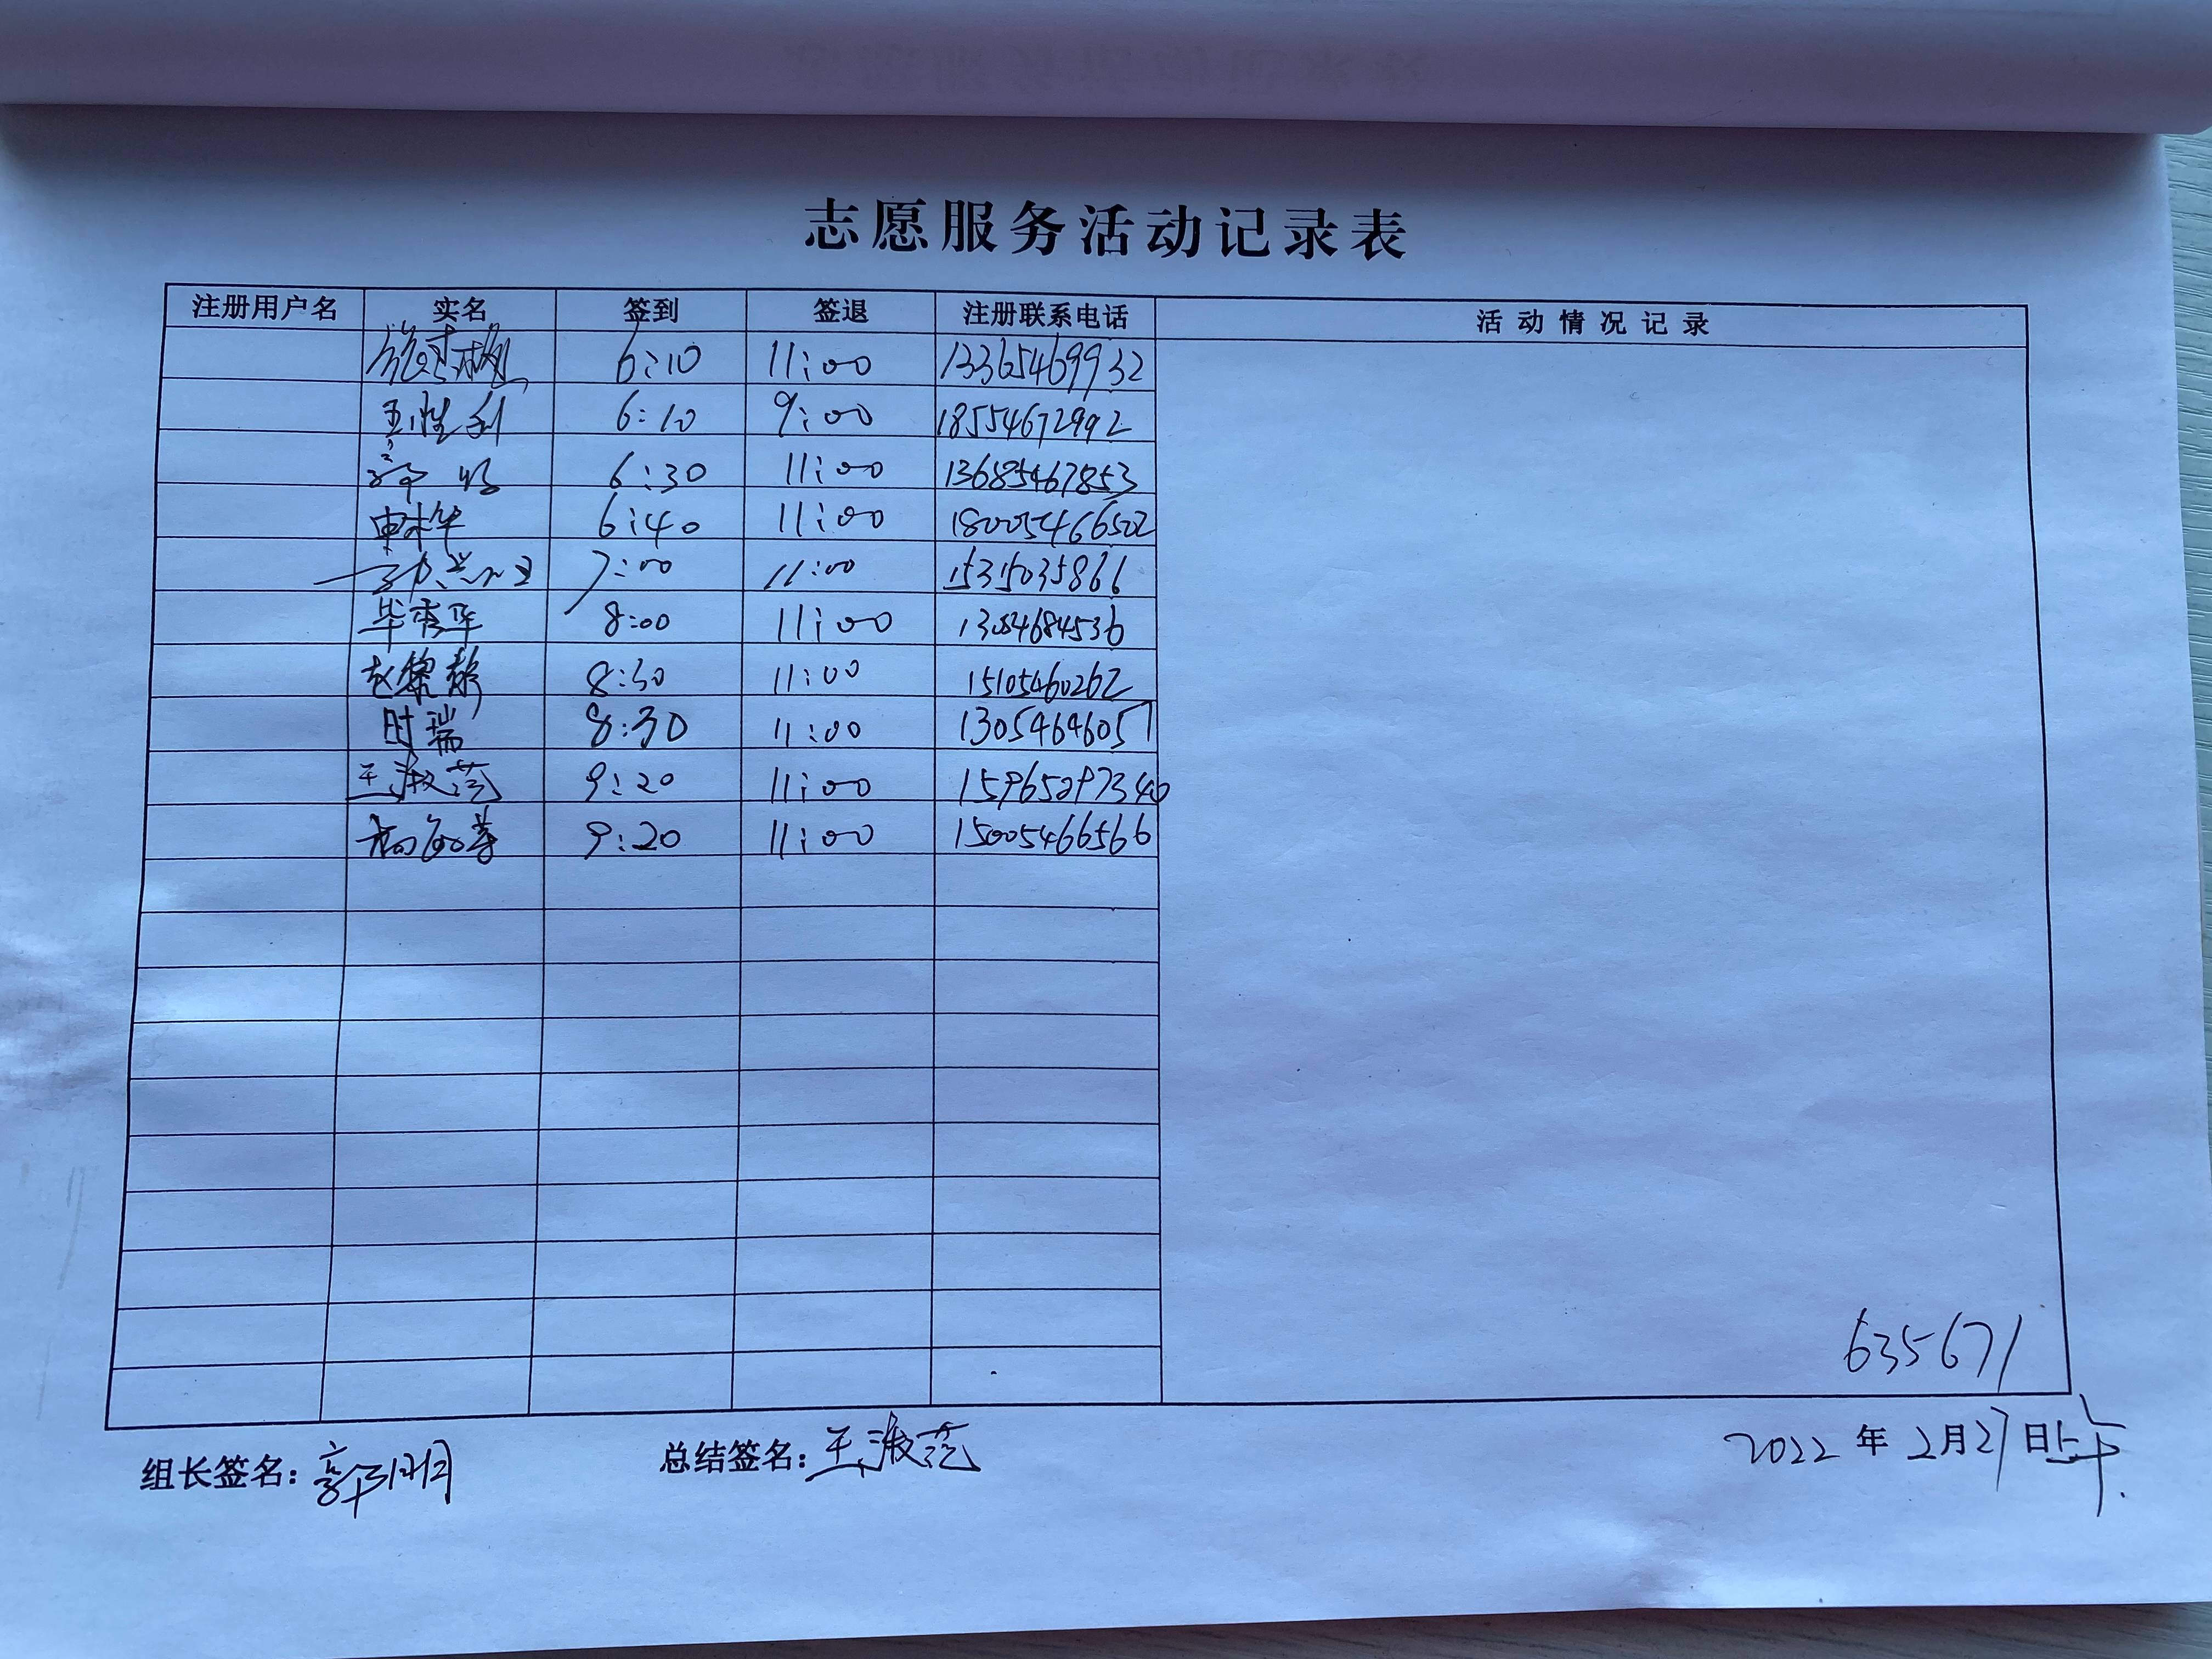 志愿服务活动记录表
注册用户名 实名 签到 签退 注册联系电话 活动情况记录
6:10 11:00 13365469932
王胜利 6:10 9:00 18554672992
6:30 11:00 13685467853
申林华 6:40 11:00 18005466502
7:00 11:00 15315035866
毕秀华 8:00 11:00 13054684536
赵黎静 8:30 11:00 15105460262
时瑞 8:30 11:00 13054646051
王淑芸 9:20 11:00 15965297340
9:20 11:00 15005466566
635671
组长签名: 总结签名: 王淑芸 2022年2月27日上午